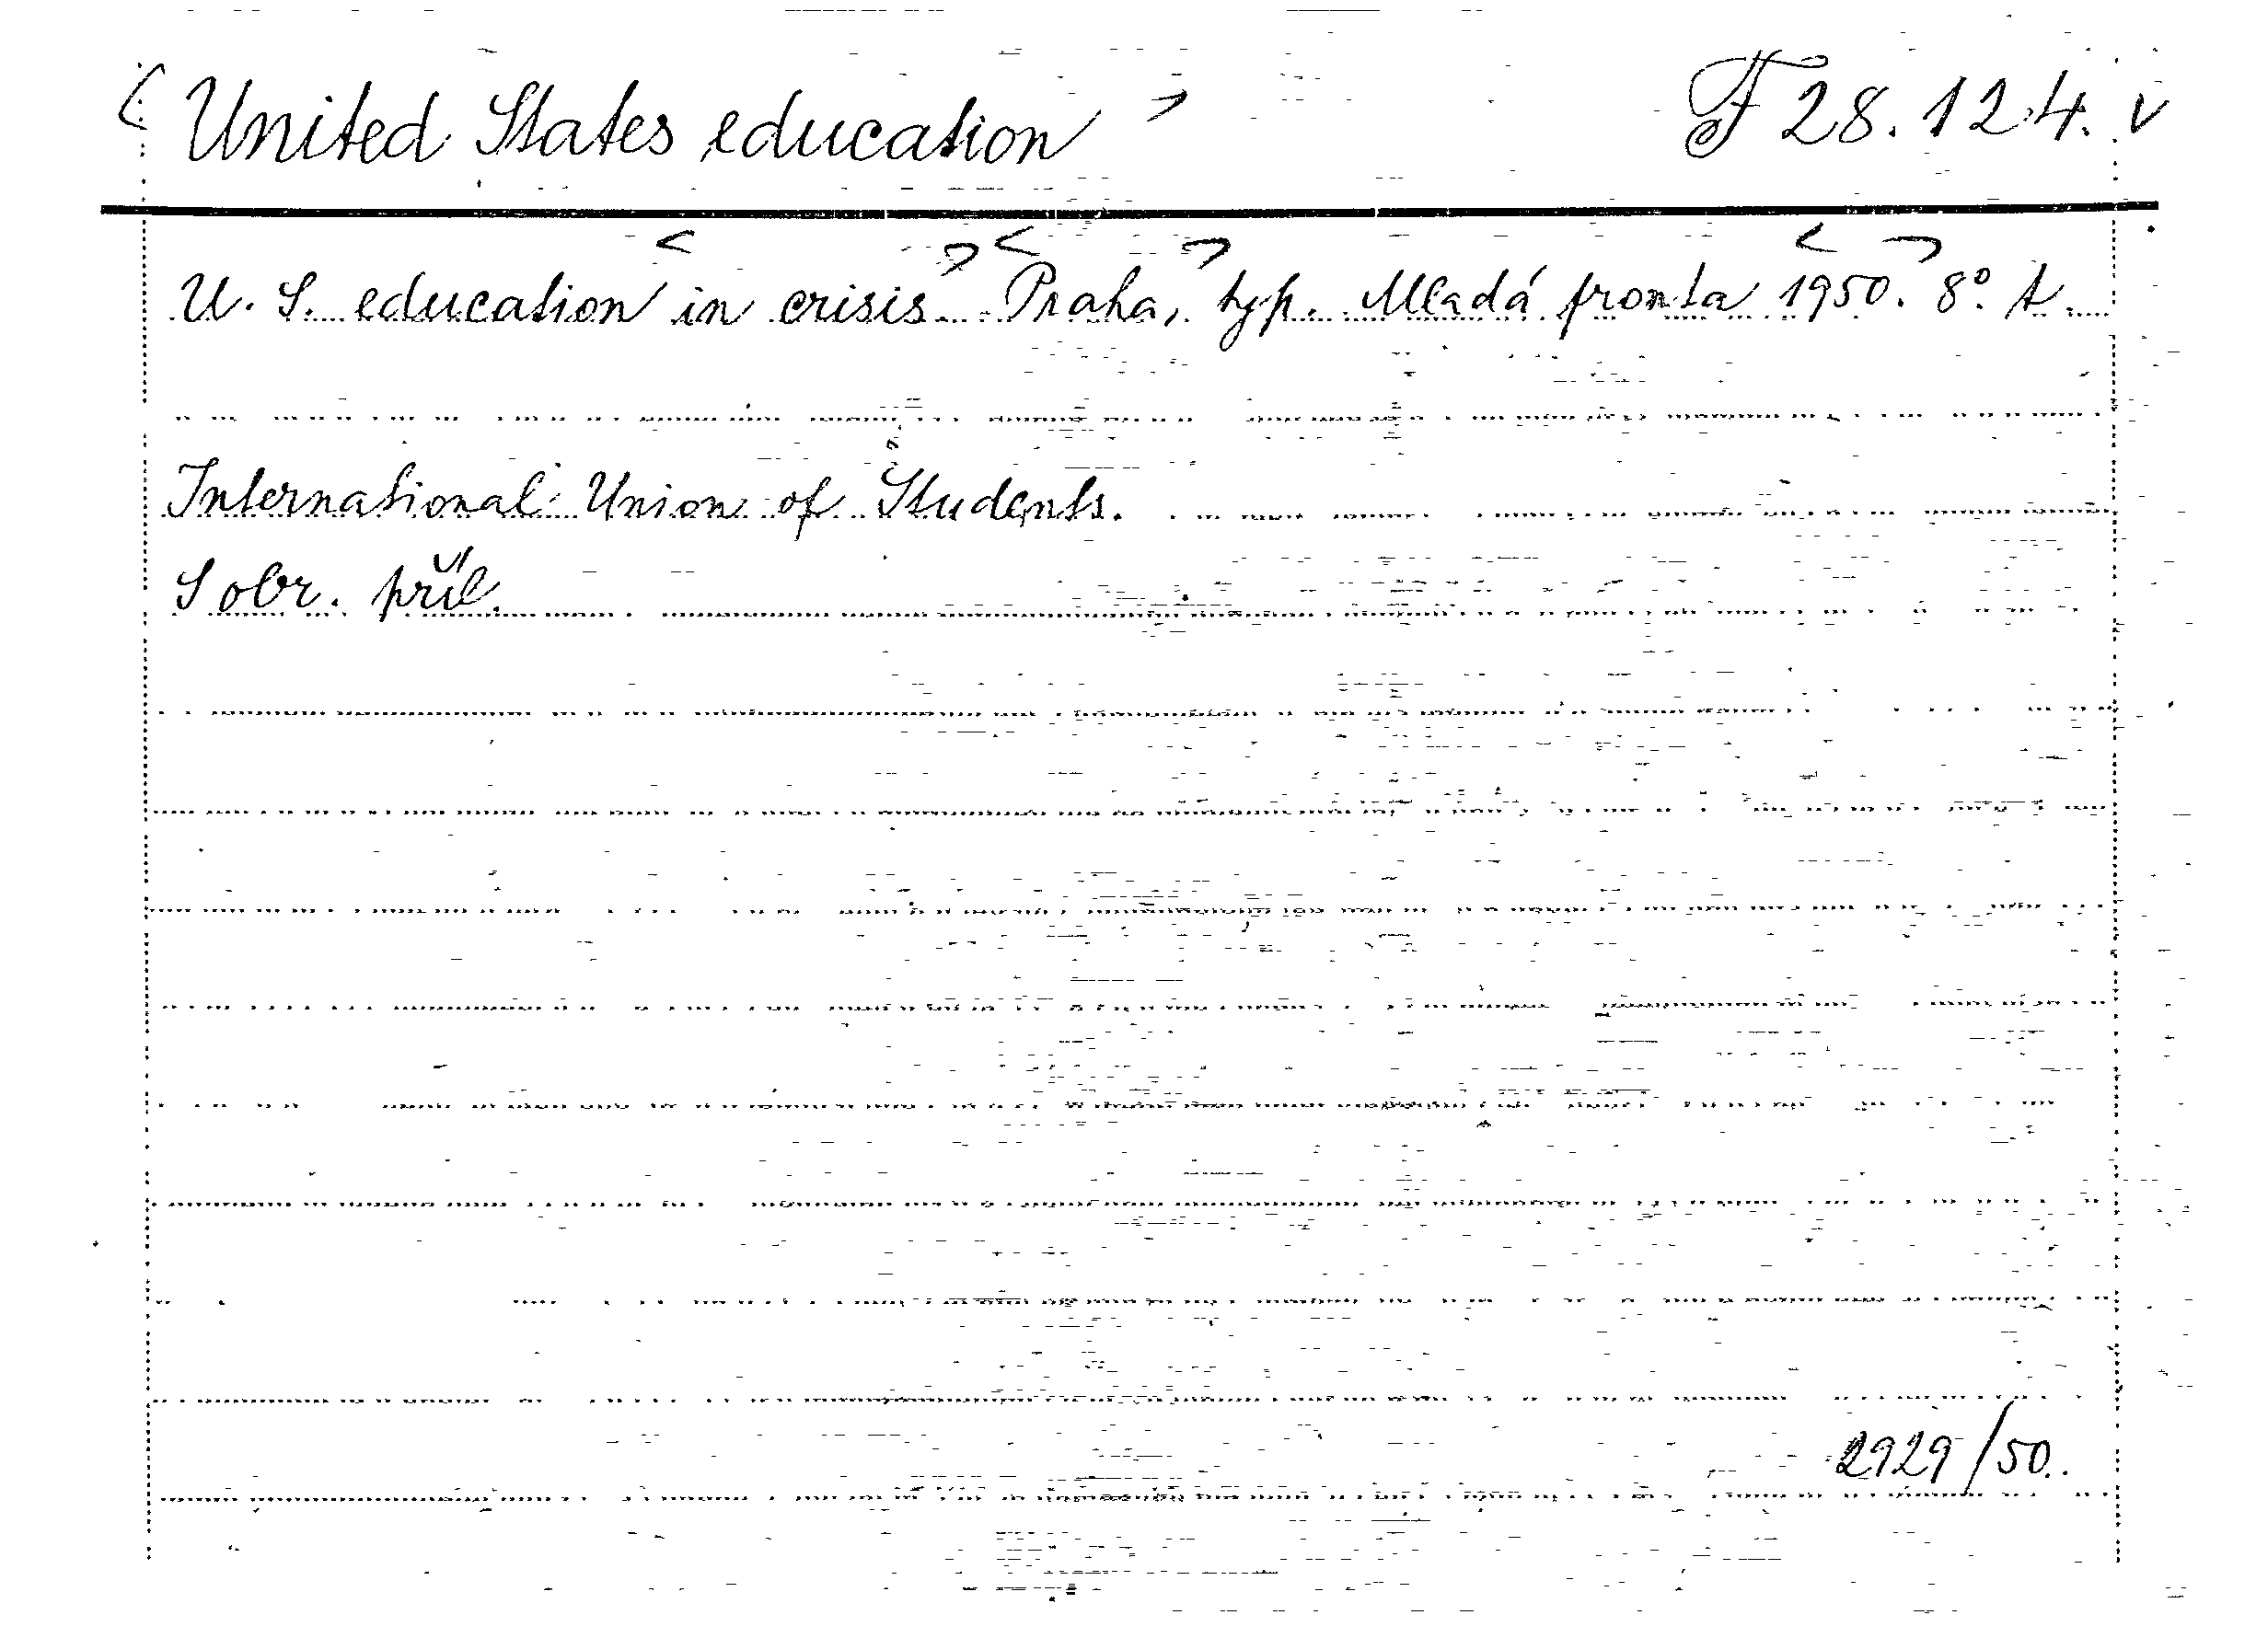 < United States education > F 28.124. v
U. S. education in crisis. Praha, typ. Mladá fronta 1950. 8°. t.
International Union of Students.
S obr. příl.
2929/50.